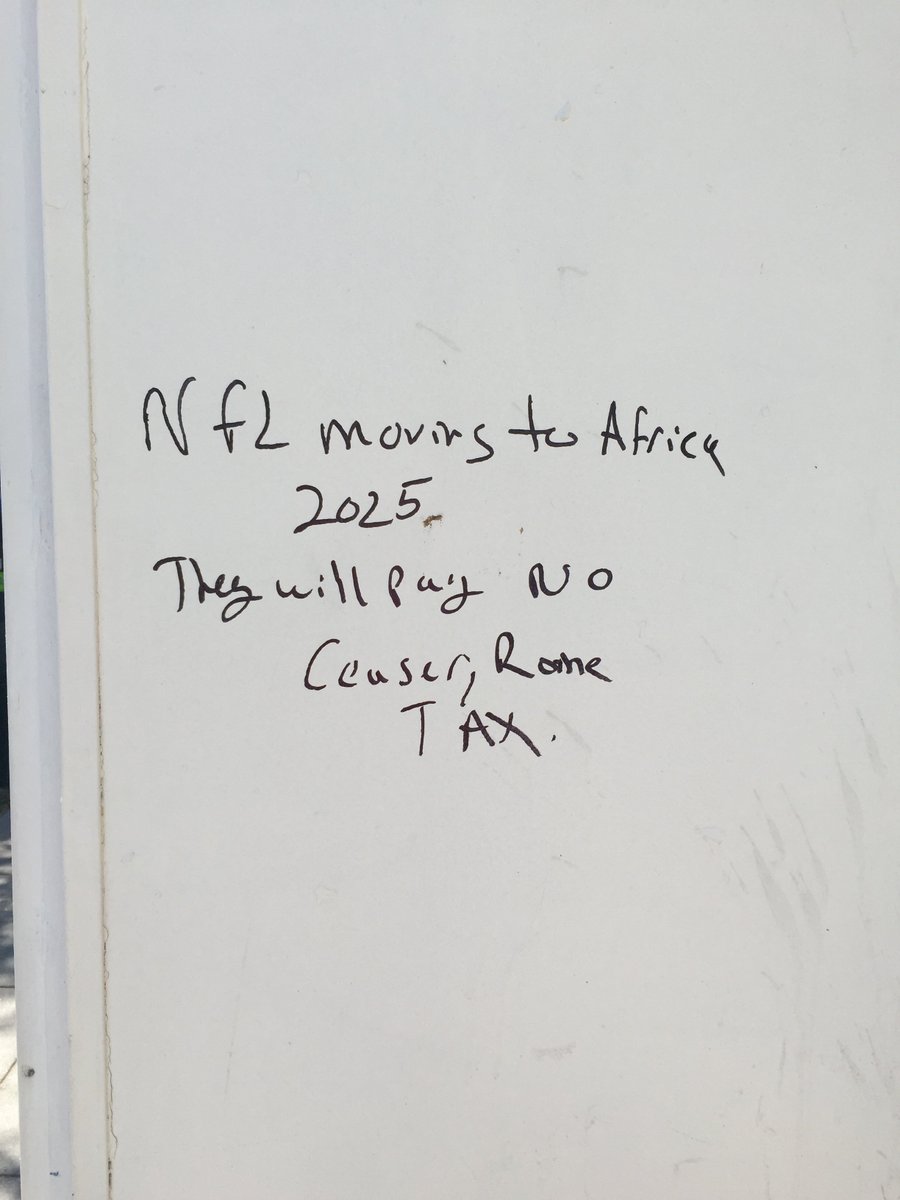 NFL moving to Africa
2025.
They will pay NO
Ceaser, Rome
TAX.